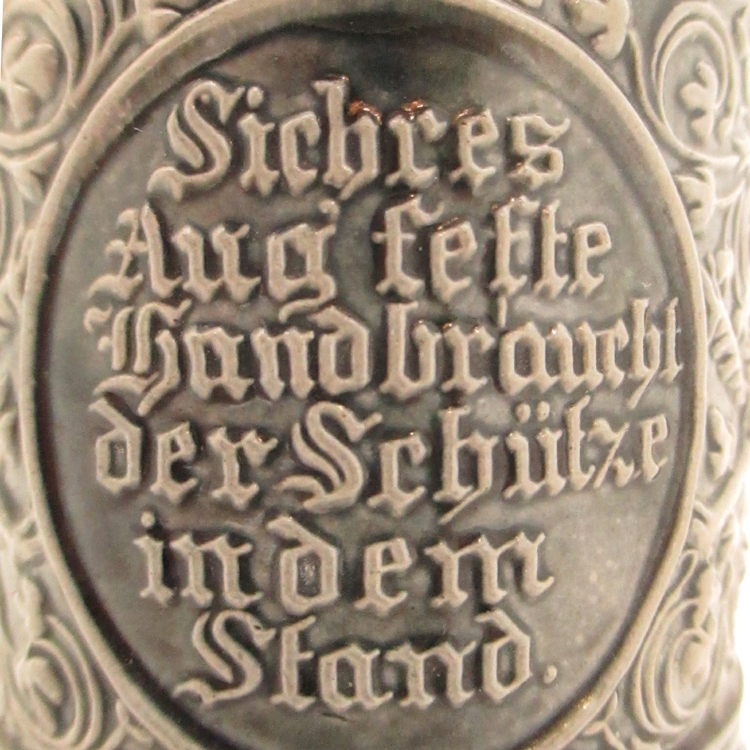 Sichres
Aug' feste
Hand braucht
der Schütze
in dem
Stand.